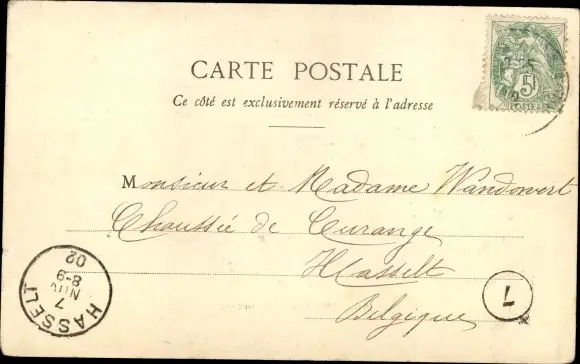 CARTE POSTALE
Ce côté est exclusivement réservé à l'adresse
5
POSTES
Monsieur et Madame Vandovert
Chaussée de Curange
Hasselt
Belgique
HASSELT
7
NOV
8-9
02
7